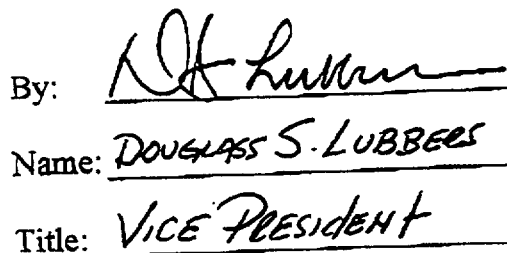 By: D S Lubbers
Name: DOUGLASS S. LUBBERS
Title: VICE PRESIDENT